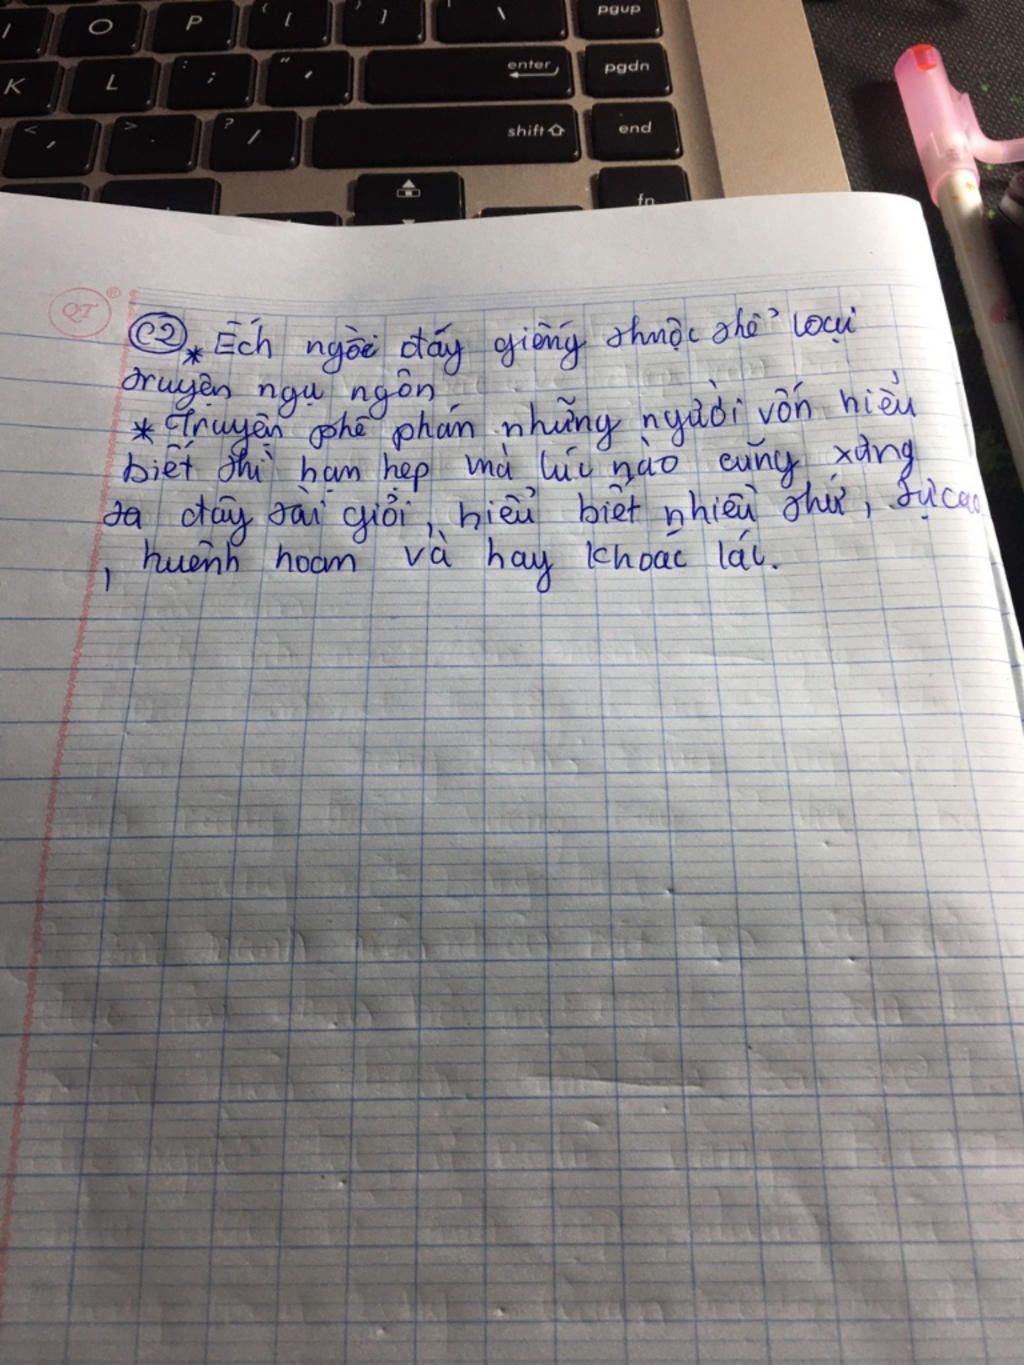 I O P { [ } ] | \ pgup
K L : ; " ' enter pgdn
< , > . ? / shift end
fn
QT ®
C2 * Ếch ngồi đáy giếng thuộc thể loại
truyện ngụ ngôn
* Truyện phê phán những người vốn hiểu
biết thì hạn hẹp mà lúc nào cũng xưng
ta đây tài giỏi, hiểu biết nhiều thứ, tự cao
, huênh hoam và hay khoác lác.